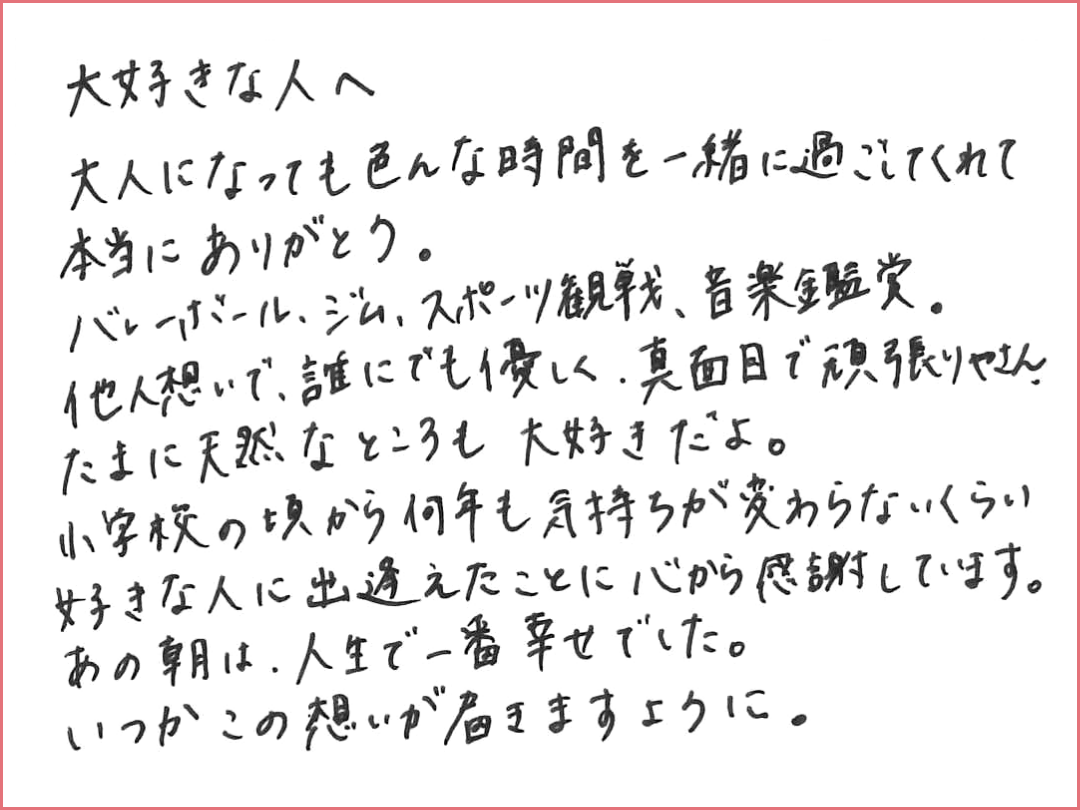 大好きな人へ
大人になっても色んな時間を一緒に過ごしてくれて
本当にありがとう。
バレーボール、ジム、スポーツ観戦、音楽鑑賞。
他人想いで、誰にでも優しく、真面目で頑張りやさん、
たまに天然なところも大好きだよ。
小学校の頃から何年も気持ちが変わらないくらい
好きな人に出逢えたことに心から感謝しています。
あの朝は、人生で一番幸せでした。
いつかこの想いが届きますように。